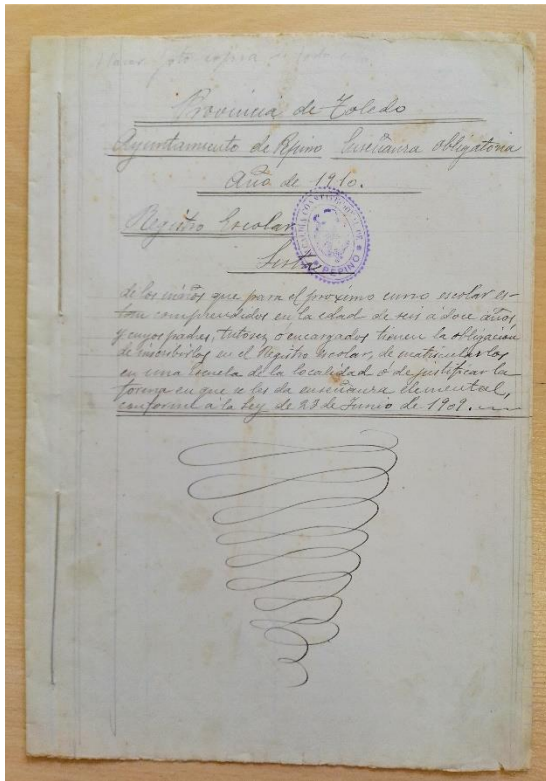 Hacer foto copia de todo
Provincia de Toledo
Ayuntamiento de Pepino Enseñanza obligatoria
Año de 1910.
Registro Escolar
ALCALDIA CONSTITUCIONAL DE PEPINO
Lista
de los niños que para el proximo curso escolar es-
tán comprendidos en la edad de seis a doce años
y cuyos padres, tutores o encargados tienen la obligación
de inscribirlos en el Registro escolar, de matricularlos
en una escuela de la localidad o de justificar la
forma en que se les da enseñanza elemental,
conforme a la Ley de 23 de Junio de 1909.